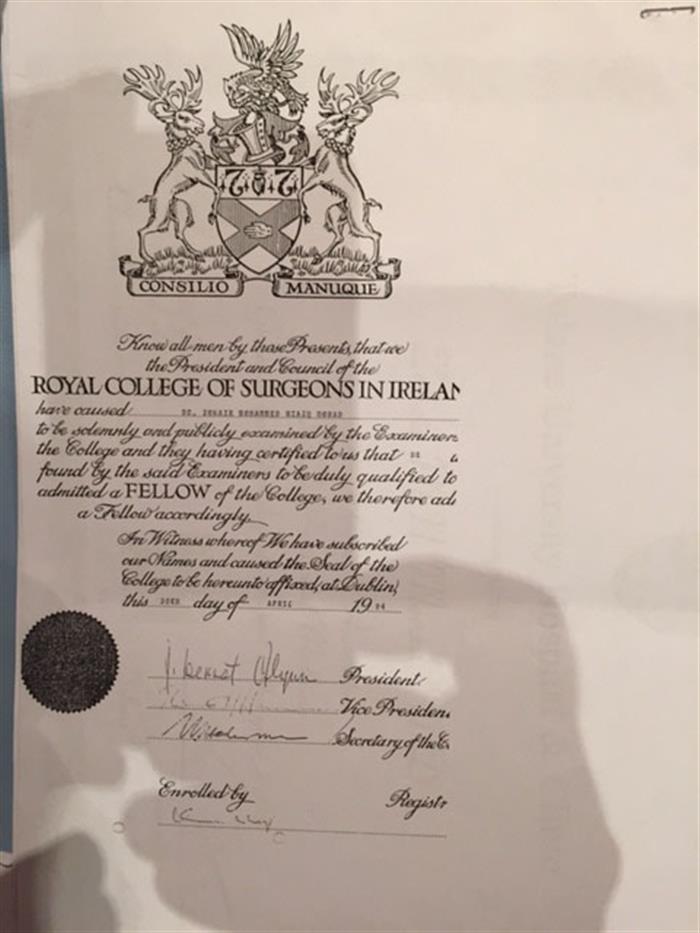 CONSILIO MANUQUE
Know all men by these Presents, that we
the President and Council of the
ROYAL COLLEGE OF SURGEONS IN IRELAN
have caused DR. MOHAMMED
to be solemnly and publicly examined by the Examiners
the College and they having certified to us that HE
found by the said Examiners to be duly qualified to
admitted a FELLOW of the College, we therefore ad
a Fellow accordingly
In Witness whereof We have subscribed
our Names and caused the Seal of the
College to be hereunto affixed, at Dublin,
this day of APRIL 19
President
Vice Presiden
Secretary of the C
Enrolled by Registr